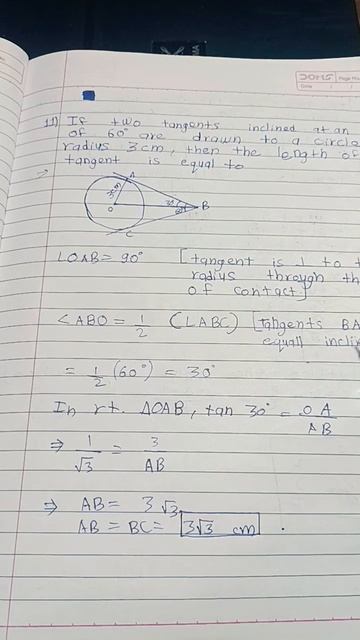 DOMS Page No.
Date / /
11) If two tangents inclined at an
of 60° are drawn to a circle
radius 3 cm, then the length of
tangent is equal to
→
A
3cm
O
30°
60°
B
C
∠OAB = 90° [tangent is ⊥ to t
radius through th
of contact]
∠ABO = 1/2 (∠ABC) [Tangents BA
equall incli
= 1/2 (60°) = 30°
In rt. ΔOAB, tan 30° = OA/AB
⇒ 1/√3 = 3/AB
⇒ AB = 3√3
AB = BC = 3√3 cm .